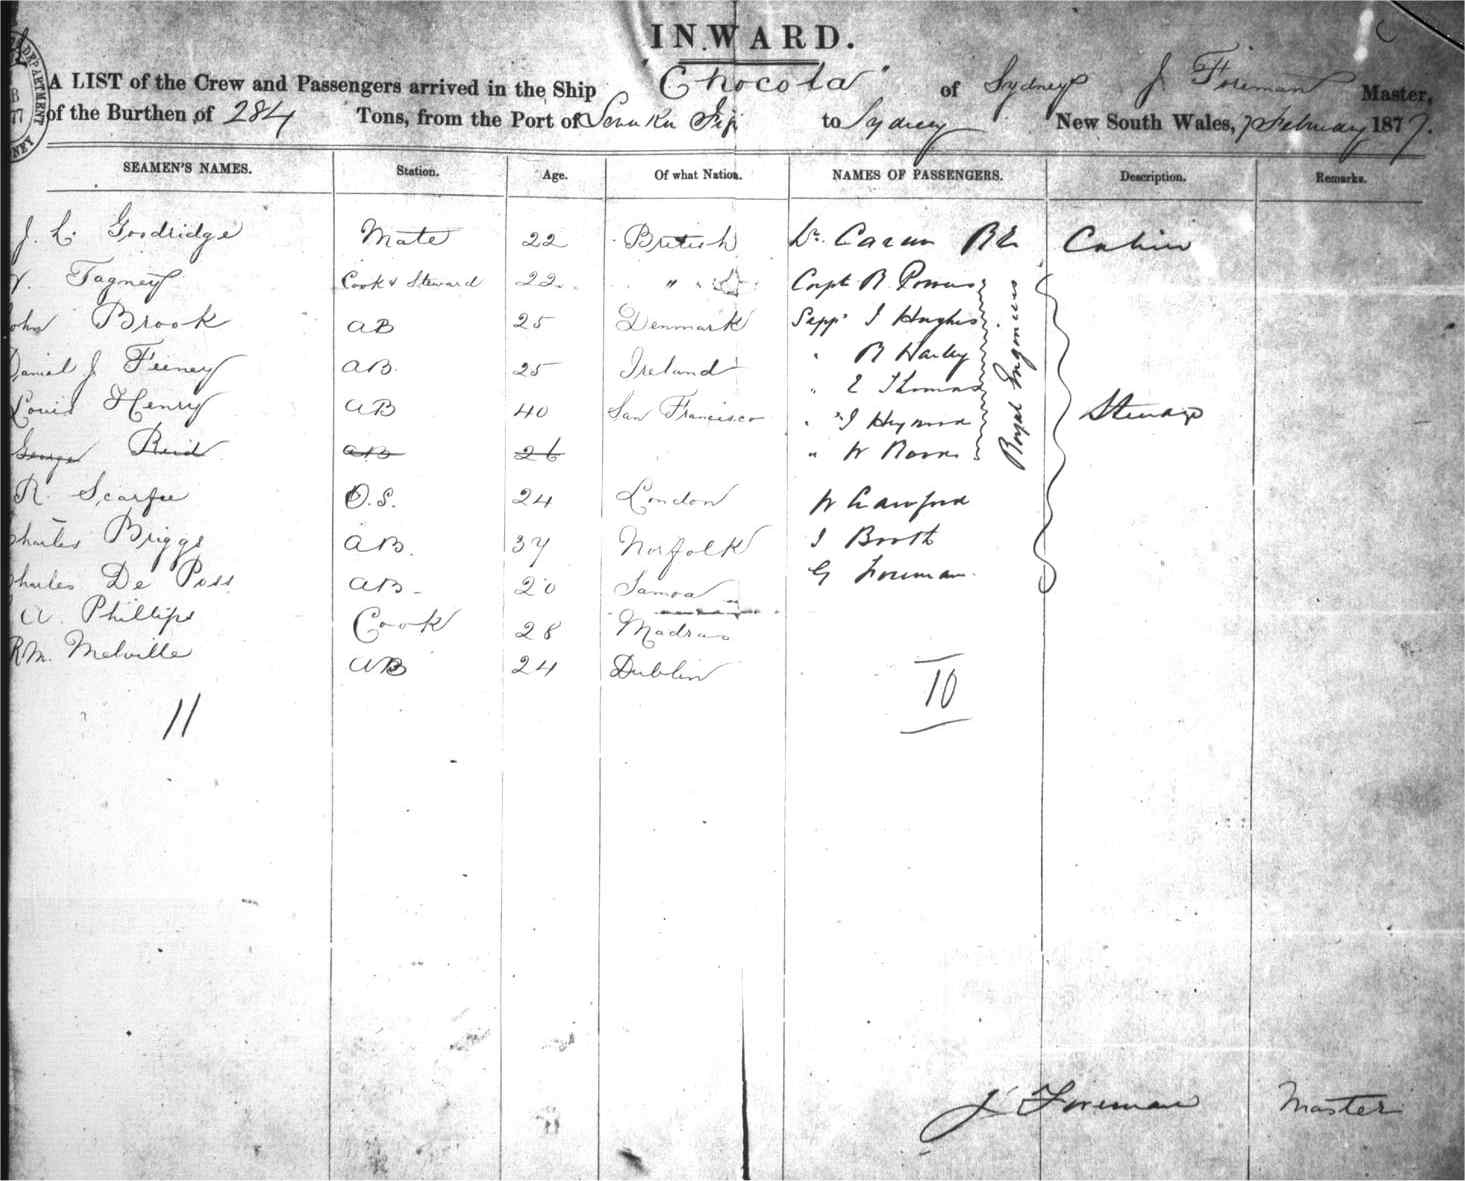 INWARD.
A LIST of the Crew and Passengers arrived in the Ship "Chocola" of Sydney J Foreman Master,
of the Burthen of 284 Tons, from the Port of to Sydney New South Wales, 7 February 1877.
DEPARTMENT
SEAMEN'S NAMES. Station. Age. Of what Nation. NAMES OF PASSENGERS. Description. Remarks.
J. L. Goodridge Mate 22 British Cabin
Tagney Cook & Steward 22 " " Capt R.
John Brook AB 25 Denmark Sepp J Hughes
Daniel J Feeney AB. 25 Ireland " R Harley
Louis Henry AB 40 San Francisco " E Thomas
George Reid AB 26 " J
R. Scarfee O.S. 24 London " W
Charles Briggs AB. 37 Norfolk W Crawford
Charles De AB - 20 Samoa J Booth
A. Phillips Cook 28 Madras G Foreman
R M. Melville AB 24 Dublin
Royal Engineers
Steerage
11
10
J Foreman Master